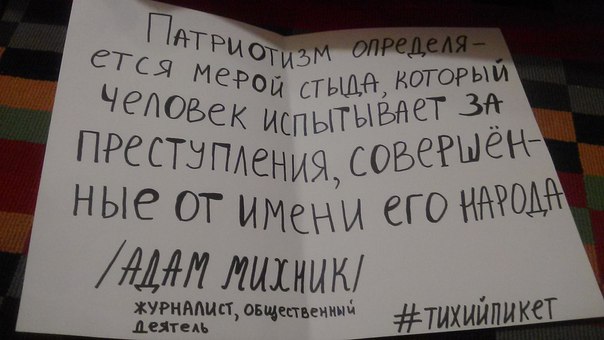 Патриотизм определя-
ется мерой стыда, который
человек испытывает за
преступления, совершён-
ные от имени его народа
/Адам Михник/
журналист, общественный
деятель
#тихийпикет